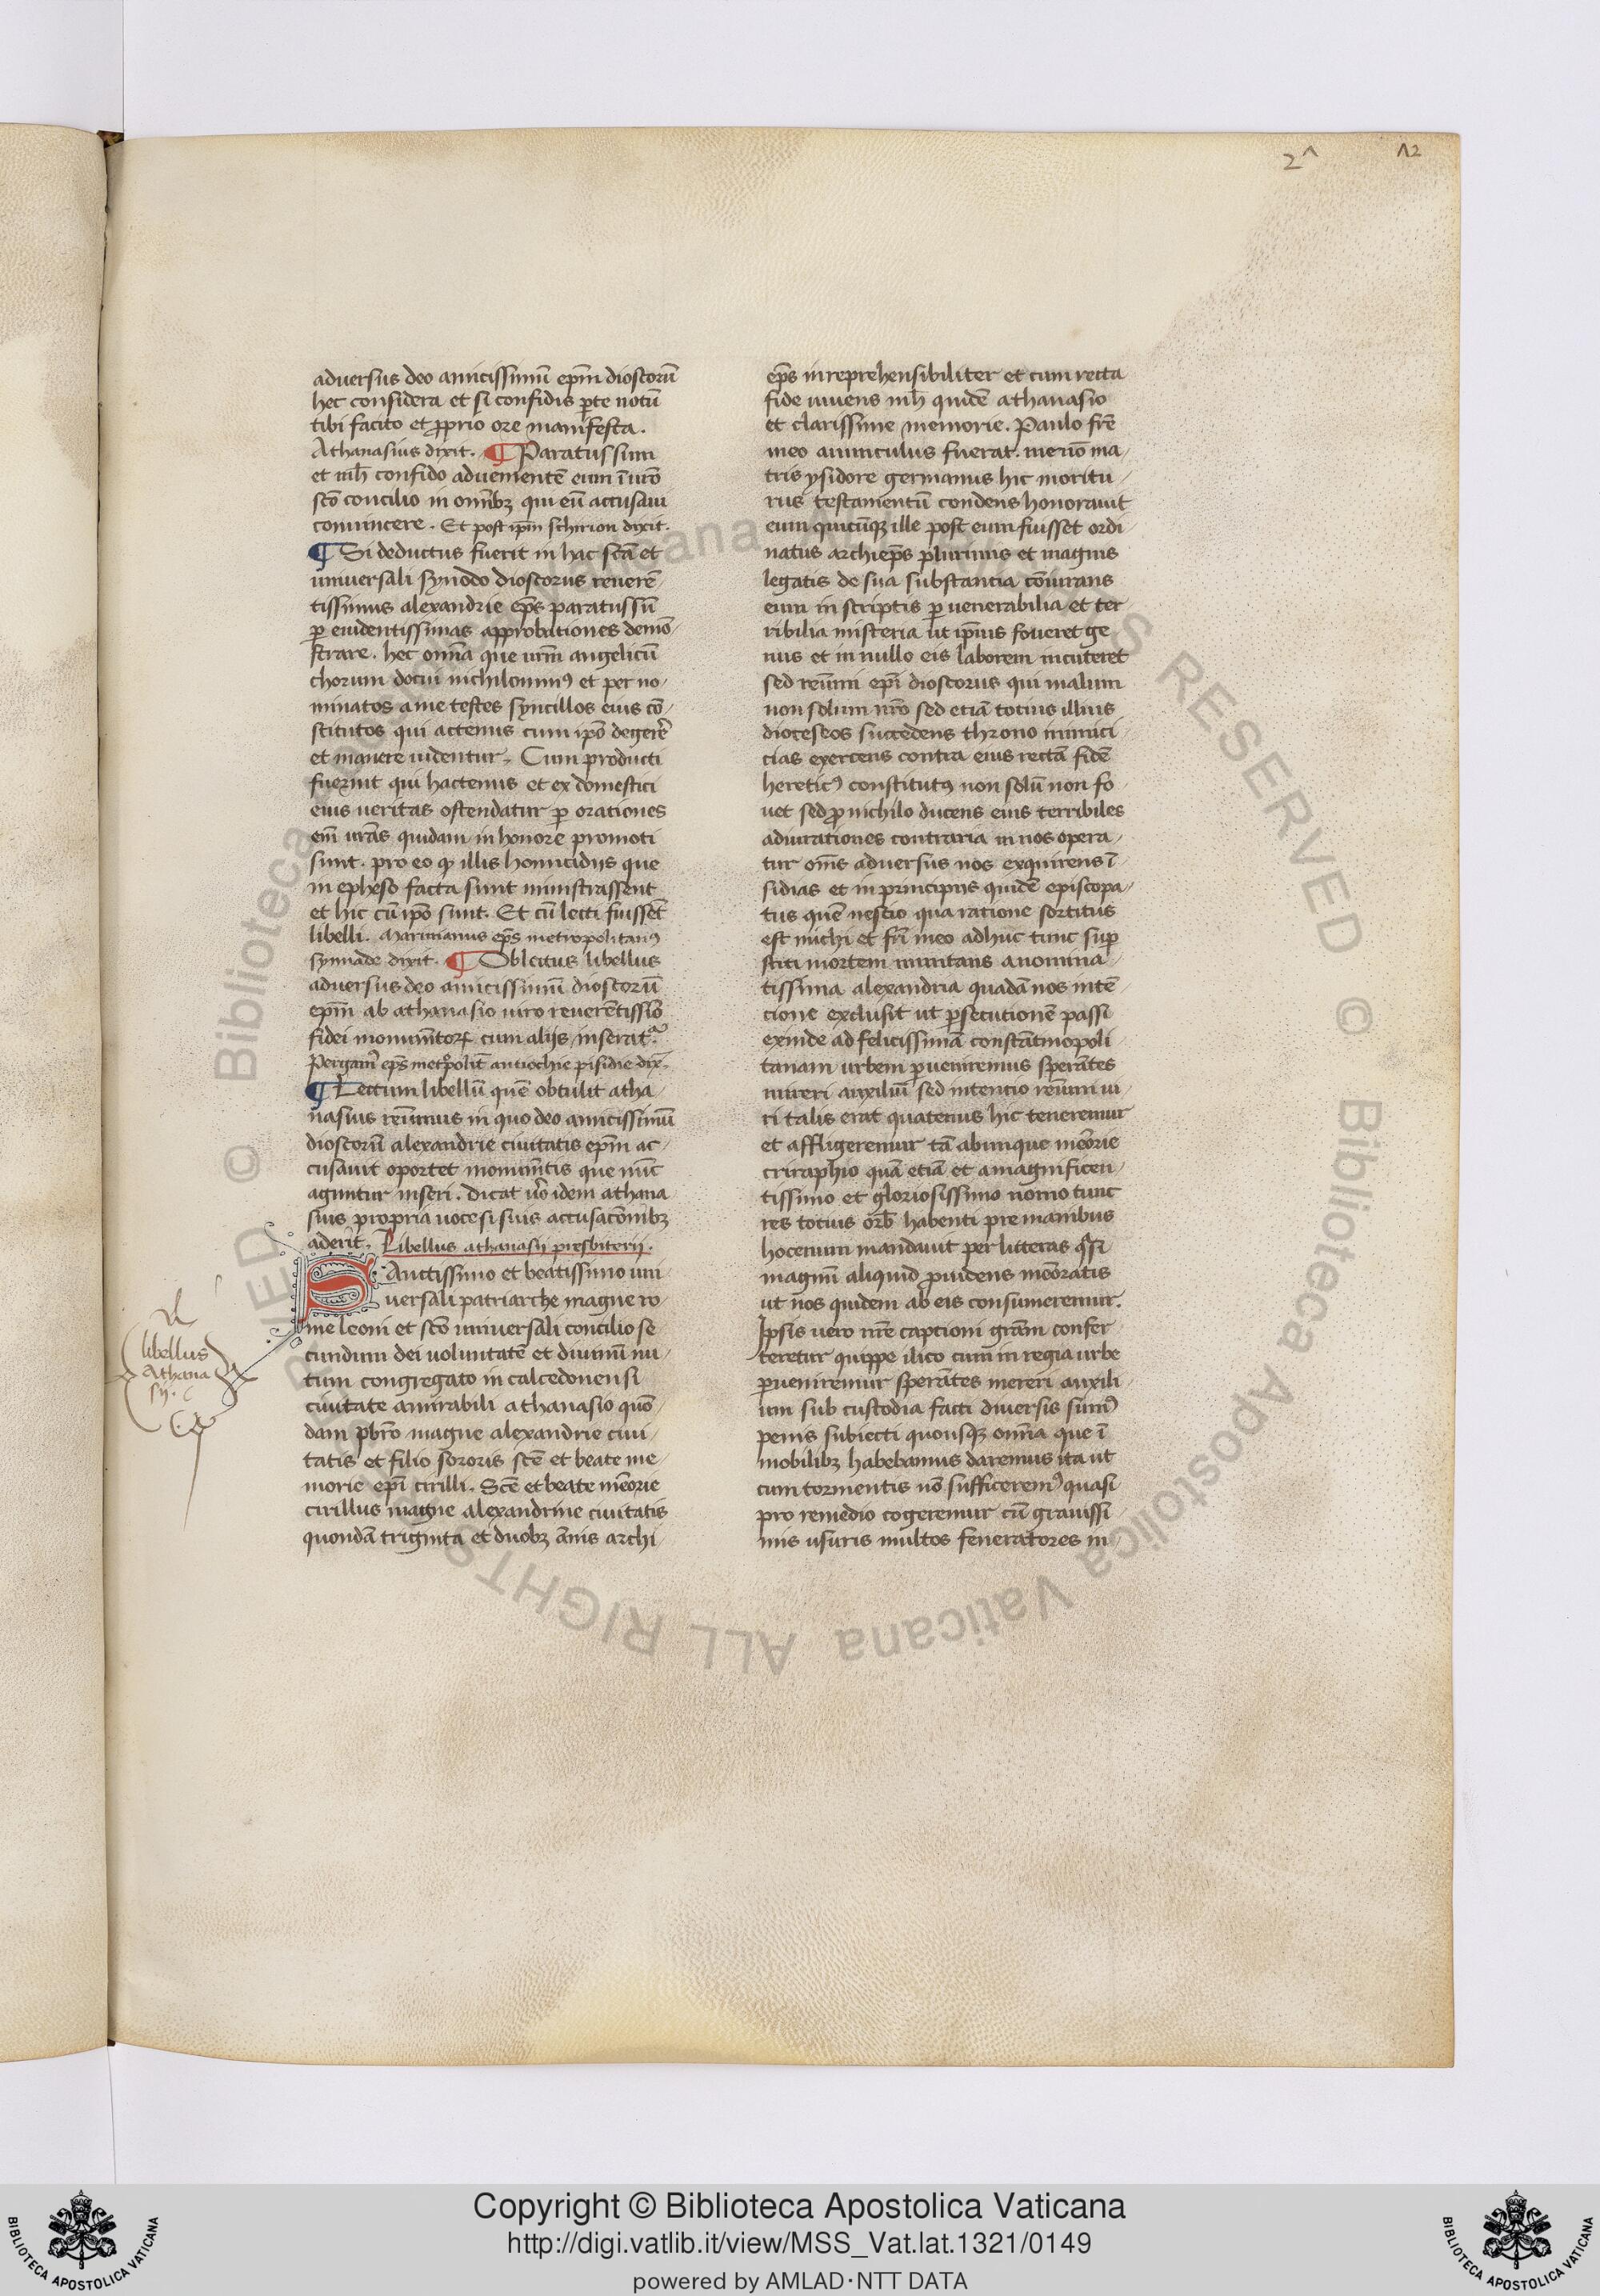 2^
12
adversus deo amicissimū ep̄m dioscorū
hec considera et si confidis p̱te notū
tibi facito et ꝓprio ore manifesta.
Athanasius dixit. ¶ Paratus sum
et mh̄ confido aduementē eum ī uro
scō concilio in om̄ibꝫ qui eū accusaui
conuincere. Et post ip̄m schirion dixit.
¶ Si deductus fuerit in hac scā et
uniuersali synodo dioscorus reuerē
tissimus alexandrie ep̄s paratus sū
ꝑ euidentissimas approbationes demō
strare. hec om̄ia que urm̄ angelicū
chorum docui nichilominꝰ et per no
minatos a me testes syncillos eius cō
stitutos qui actenus cum ip̄o degere
et manere uidentur. Cum producti
fuerint qui hactenus et ex domestici
eius ueritas ostendatur ꝑ orationes
em̄ urās quidam in honore promoti
sunt. pro eo ꝙ illis homicidiis que
in epheso facta sunt ministrassent
et hic cū ip̄o sunt. Et cū lecti fuissēt
libelli. Marinianus ep̄s metropolitanꝰ
synnade dixit. ¶ Oblatus libellus
adversus deo amicissimū dioscorū
ep̄m ab athanasio uiro reuerētissīo
fidei monumētoꝝ cum aliis inserat᷑.
Pergam̄ ep̄s met̄polit̄ antiochie pisidie dix̄.
¶ Lectum libellū quē obtulit atha
nasius reūimus in quo deo amicissimū
dioscorū alexandrie ciuitatis ep̄m ac
cusauit oportet monumētis que nūc
aguntur inseri. dicat ūo idem athana
sius propria uoce si suis accusacōnibꝫ
aderit. Libellus athanasii presbiterii.
SAnctissimo et beatissimo uni
uersali patriarche magne ro
me leoni et scō uniuersali concilio se
cundum dei uoluntatē et diuinū nu
tum congregato in calcedonensi
ciuitate amirabili athanasio quō
dam p̄bro magne alexandrie ciui
tatis et filio sororis scē et beate me
morie ep̄i cirilli. Scē et beate mēorie
cirillus magne alexandrine ciuitatis
quondā triginta et duobꝫ ānis archi
libellus
Athana
sii.
ep̄s inreprehensibiliter et cum recta
fide uiuens mh̄ quidē athanasio
et clarissime memorie. Paulo frē
meo auunculus fuerat. meriō ma
tris ysidore germanus hic moritu
rus testamentū condens honorauit
eum quicūqꝫ ille post eum fuisset ordi
natus archiep̄s plurimis et magnis
legatis de sua substantia cōiurans
eum in scriptis ꝑ uenerabilia et ter
ribilia misteria ut ip̄ius foueret ge
nus et in nullo eis laborem incuteret
sed reūmi ep̄i dioscorus qui malum
non solum nr̄o sed etiā totius illius
dioceseos succedens throno inimici
cias exercens contra eius rectā fidē
hereticꝰ constitutꝰ non solū non fo
uet sed ꝓ nichilo ducens eius terribiles
adiurationes contraria in nos opera
tur om̄s aduersus nos exquirens ī
sidias et in principiis quidē episcopa
tus quē nescio qua ratione sortitus
est michi et frī meo adhuc tunc suꝑ
stiti mortem minitans a nomina
tissima alexandria quadā nos intē
cione exclusit ut ꝑsecutionē passi
exinde ad felicissimā constātinopoli
tanam urbem ꝑueniremus sperātes
mireri auxiliū sed intencio reūmi ui
ri talis erat quatenus hic teneremur
et affligeremur tā abimque mēorie
criraphio quā etiā et a magnificen
tissimo et gloriosissimo nomo tunc
res totius orb̄ habenti pre manibus
hoc enim mandauit per litteras q̄si
magnū aliquid ꝓuidens mēoratis
ut nos quidem ab eis consumeremur.
Ipsis uero nr̄e captioni grām confer
teretur quippe ilico cum in regia urbe
ꝑueniremur sperātes mereri auxili
um sub custodia facti diuersis sumꝰ
penis subiecti quousqꝫ om̄ia que ī
mobilibꝫ habebamus daremus ita ut
cum tormentis nō sufficeremꝰ quasi
pro remedio cogeremur cū grauissi
mis usuris multos feneratores in
Copyright © Biblioteca Apostolica Vaticana
http://digi.vatlib.it/view/MSS_Vat.lat.1321/0149
powered by AMLAD·NTT DATA